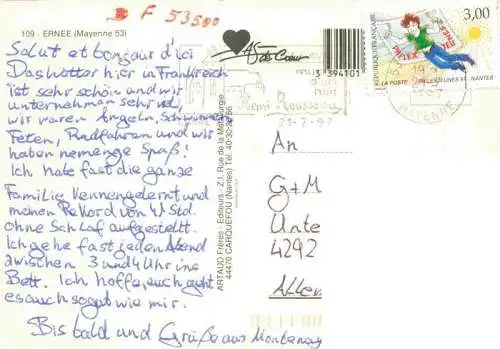 F 53500
109 - ERNEE (Mayenne 53)
Salut et bonjour d'ici
Das Wetter hier in Frankreich
ist sehr schön und wir
unternehmen sehr viel,
wir waren Angeln, Schwimmen
Feten, Radfahren und wir
haben ne menge Spaß!
Ich habe fast die ganze
Familie kennengelernt und
meinen Rekord von 41 Std.
ohne Schlaf aufgestellt.
Ich gehe fast jeden Abend
zwischen 3 und 4 Uhr ins
Bett. Ich hoffe, euch geht
es auch so gut wie mir.
Bis bald und Grüße aus Montenay
As de Coeur
ARTAUD Frères - Editeurs - Z.I. Rue de la Métallurgie
44470 CARQUEFOU (Nantes) Tél. 40-30-27-56
3 394101
Henri Rousseau
21-7-97
REPUBLIQUE FRANÇAISE
3,00
LA POSTE
PHILEXJEUNES 97 - NANTES
MAYENNE
An
G+M
Unte
4292
Allem